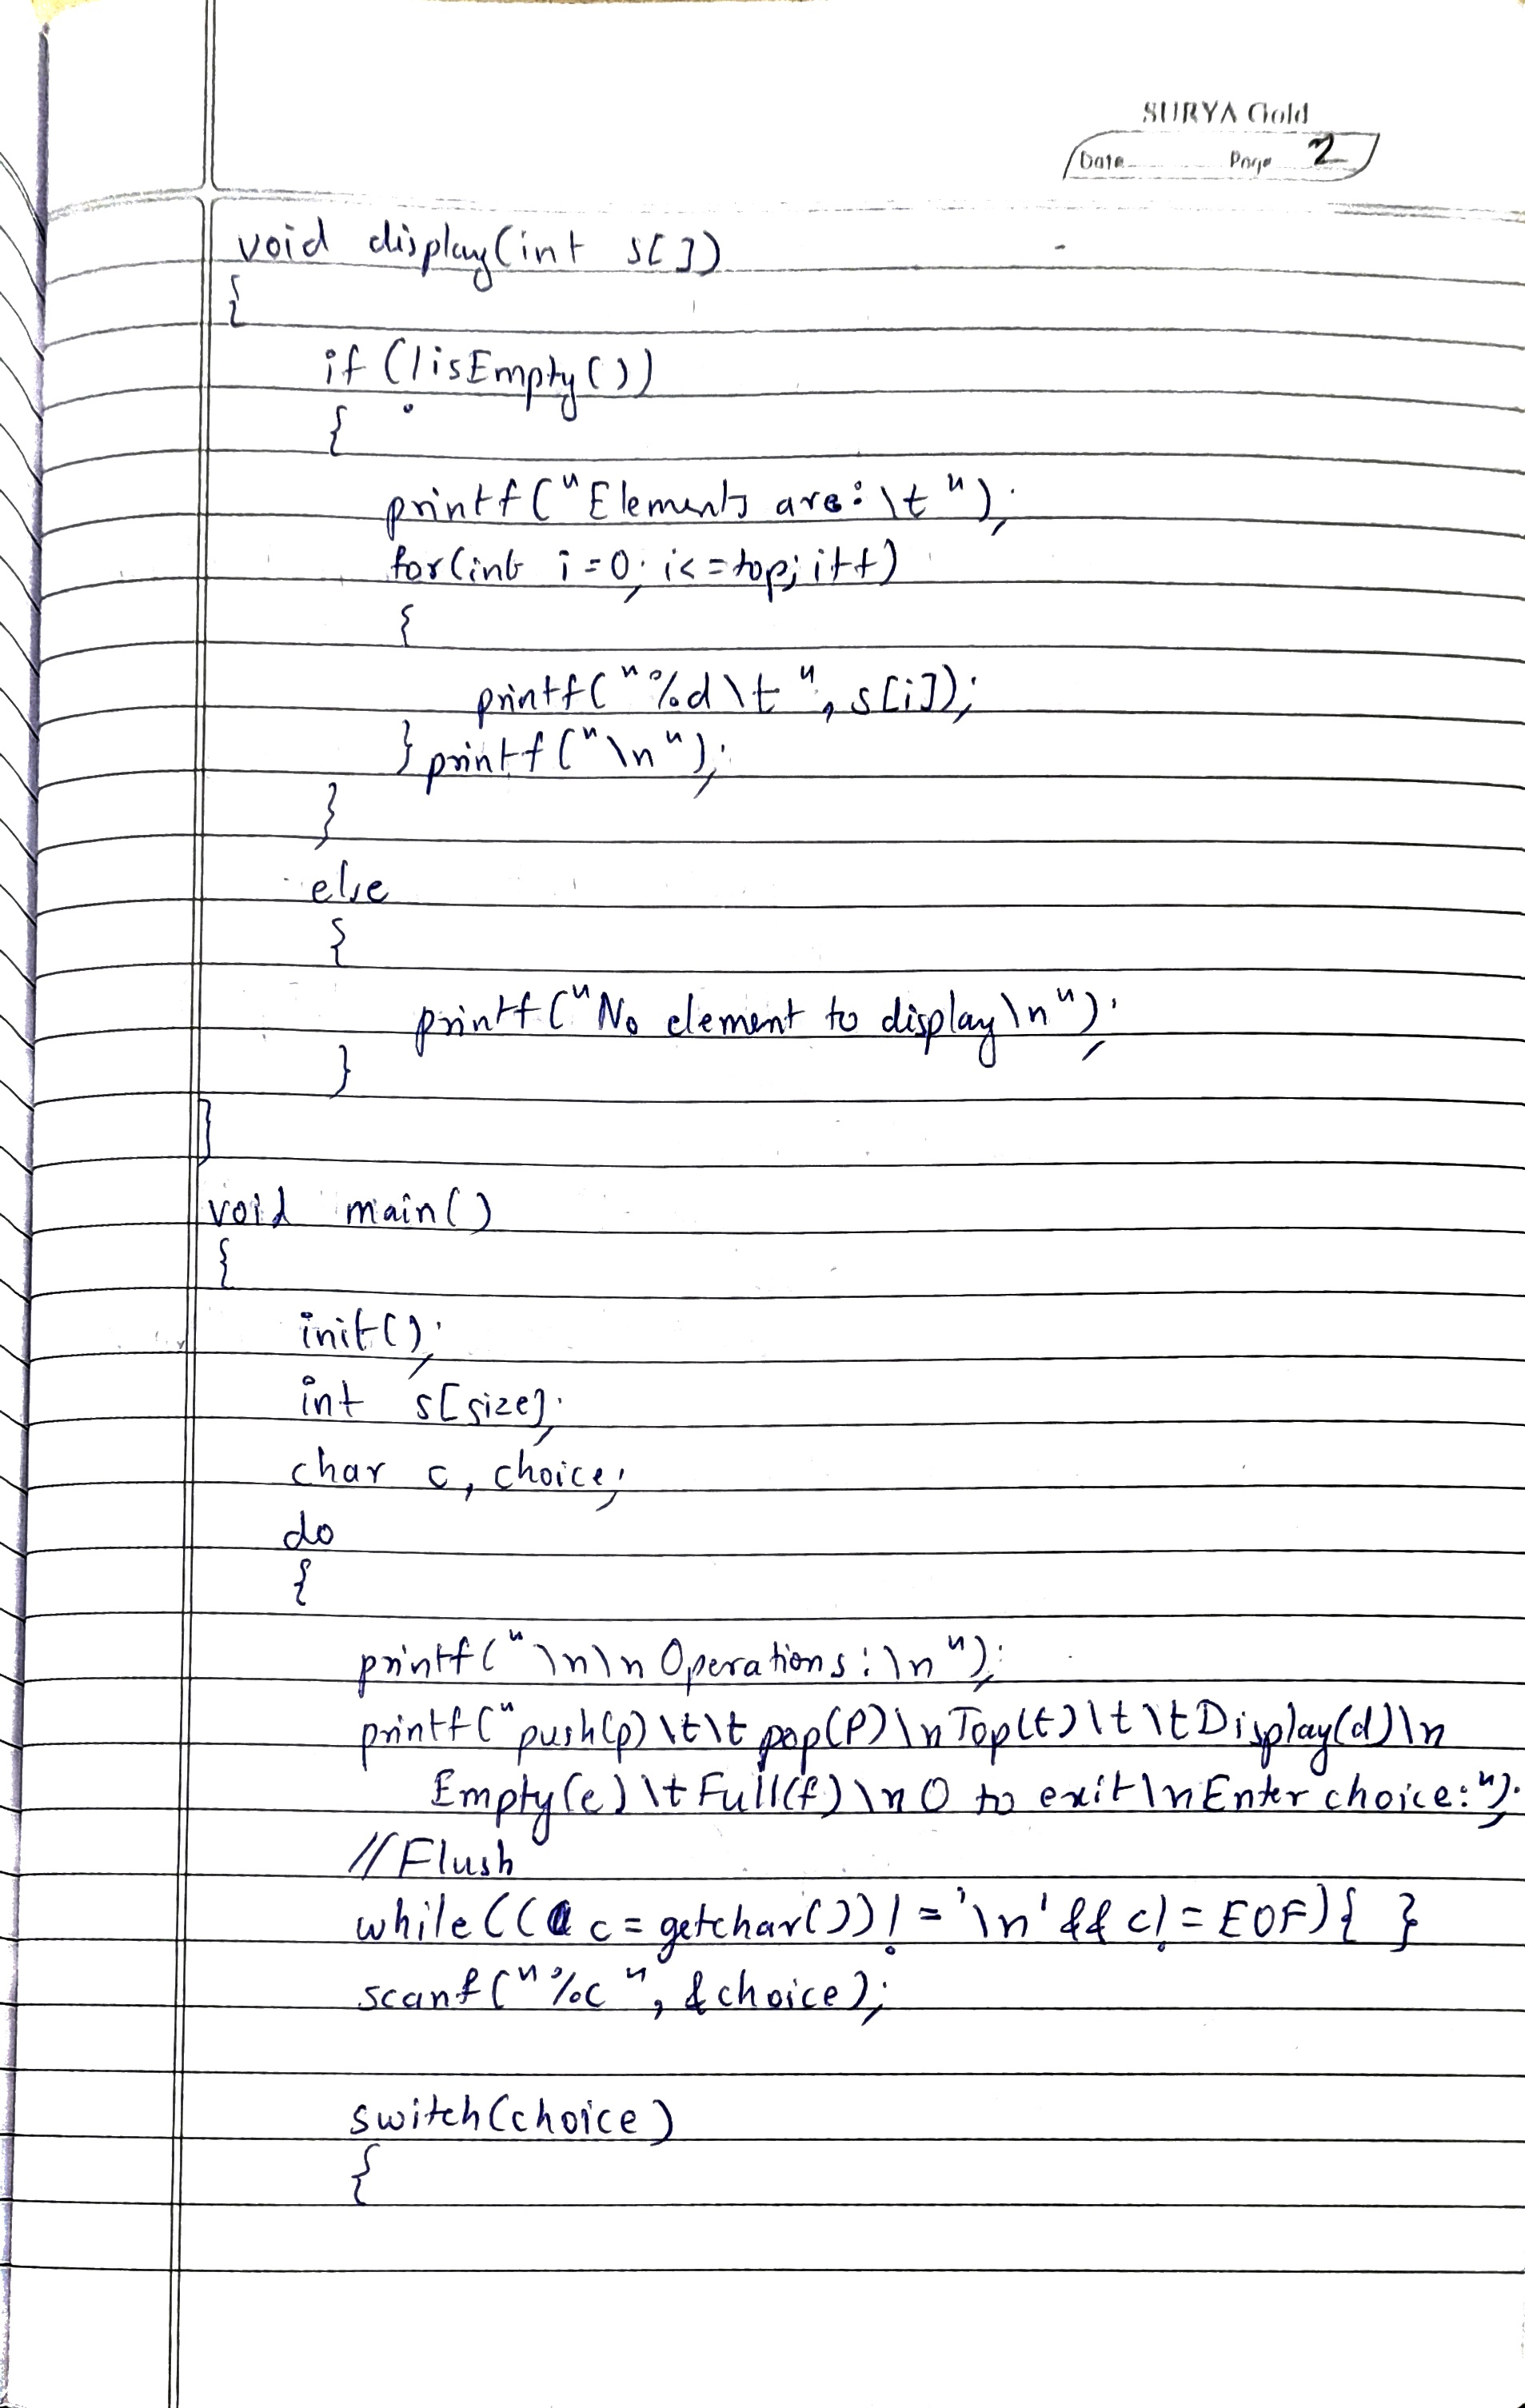 SURYA Gold
Date Page 2
void display(int s[])
{
if (!isEmpty())
{
printf("Elements are:\t");
for(int i=0; i<=top; i++)
{
printf("%d\t", s[i]);
} printf("\n");
}
else
{
printf("No element to display\n");
}
}
void main()
{
init();
int s[size];
char c, choice;
do
{
printf("\n\n Operations:\n");
printf("push(p)\t\t pop(P)\n Top(t)\t\t Display(d)\n
Empty(e)\t Full(f)\n 0 to exit\n Enter choice:");
//Flush
while((c = getchar()) != '\n' && c != EOF){ }
scanf("%c", &choice);
switch(choice)
{